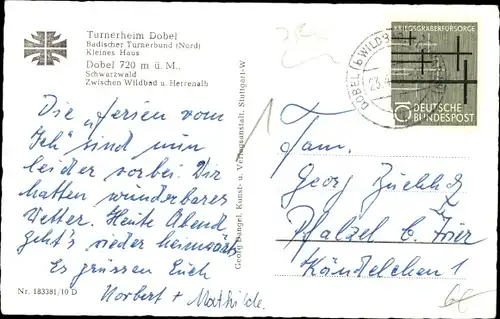 Turnerheim Dobel
Badischer Turnerbund (Nord)
Kleines Haus
Dobel 720 m ü. M.,
Schwarzwald
Zwischen Wildbad u. Herrenalb
Die „Ferien vom
Ich“ sind nun
leider vorbei. Wir
hatten wunderbares
Wetter. Heute Abend
geht's wieder heimwärts
Es grüssen Euch
Norbert + Mathilde.
Nr. 183381/10 D
Georg Dangel, Kunst- u. Verlagsanstalt, Stuttgart-W
KRIEGSGRÄBERFÜRSORGE
10 DEUTSCHE
BUNDESPOST
DOBEL (b WILDBAD
23.4.
Fam.
Georg
Pfalzel b. Trier
Kändelchen 1